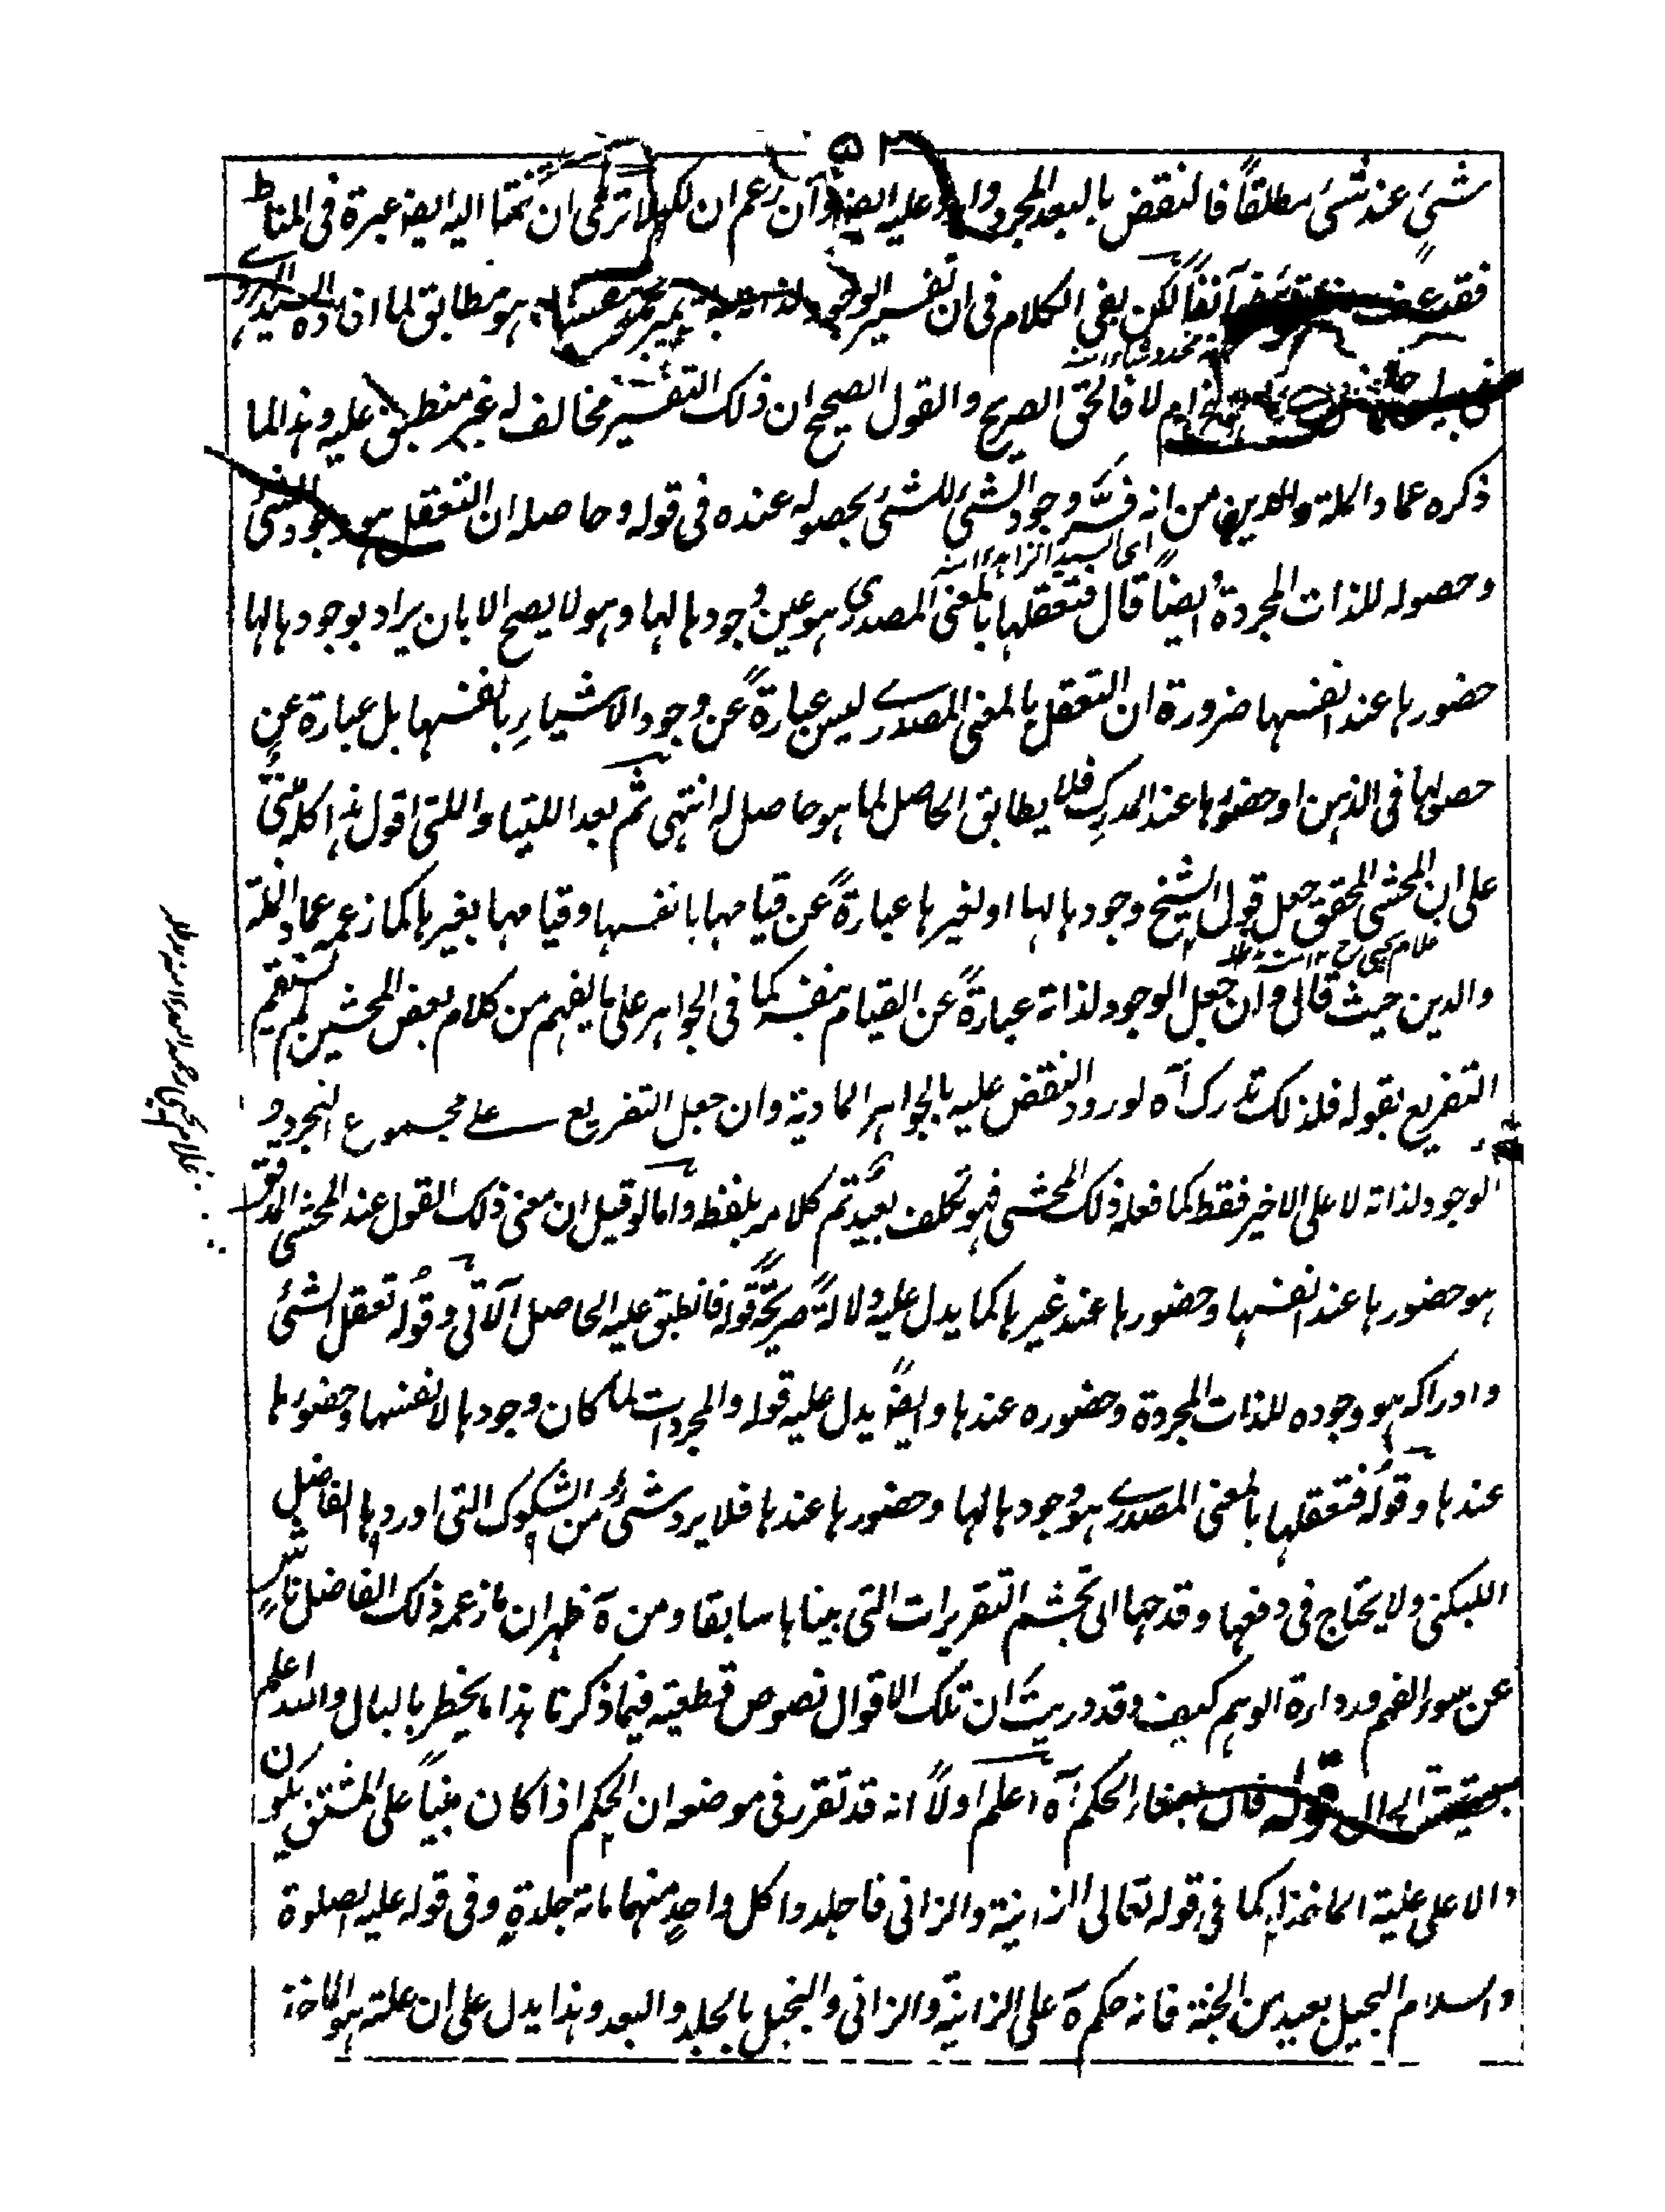 ٥٢
شئ عند شئ مطلقاً فالنقض بالبعد المجرد وارد عليه ايضا وان زعم ان لكل ان نحتا اليه ايضا عبرة فى المناط
فقد عرفت آنفاً لكن بقى الكلام فى ان تفسير الوجود لذاته هو مطابق لما افاده السيد
ام لا فالحق الصريح والقول الصحيح ان ذلك التفسير مخالف له غير منطبق عليه وهذا لما
ذكره عماد الملة والدين من انه فسّر وجود الشئ للشئ بحصوله عنده فى قوله وحاصله ان التعقل هو وجود الشئ
اى السيد الزاهد ١٢ منه
وحصوله للذات المجردة وايضاً قال فتعقلها بالمعنى المصدرى هو عين وجودها لها وهو لا يصح الا بان يراد بوجودها لها
حضورها عند انفسها ضرورة ان التعقل بالمعنى المصدرے ليس عبارةً عن وجود الاشياءِ بانفسها بل عبارة عن
حصولها فى الذهن او حضورها عند المدرِك فلا يطابق الحاصل لما هو حاصل له انتهى ثم بعد اللتيا واللتى اقول هذا كله مبنىٌّ
على ان المحشى المحقق جعل قول الشيخ وجودها لها او لغيرها عبارةً عن قيامها بانفسها وقيامها بغيرها كما زعمه عماد الملة
والدين حيث قال وان جعل الوجود لذاته عبارةً عن القيام بنفسه كما فى الجواهر على ما يفهم من كلام بعض المحشين لم يستقم
التفريع بقوله فلذلك تدرك آه لورود النقض عليه بالجواهر المادية وان جعل التفريع على مجموع التجرد و
الوجود لذاته لا على الاخير فقط كما فعله ذلك المحشى فهو تكلف بعيد تم كلامه بلفظه واما لو قيل ان معنى ذلك القول عند المحشى المدقق
هو حضورها عند انفسها وحضورها عند غيرها كما يدل عليه دلالةً صريحةً قوله فانطبق عليه الحاصل الآتى وقوله تعقل الشئ
وادراكه هو وجوده للذات المجردة وحضوره عندها وايضاً يدل عليه قوله والمجردات لما كان وجودها لانفسها وحضورها
عندها وقوله فتعقلها بالمعنى المصدرے هو وجودها لها وحضورها عندها فلا يرد شئ من الشكوك التى اوردها الفاضل
اللبكنى ولا يحتاج فى دفعها وقدحها الى تجشم التقريرات التى بيناها سابقا ومن ة ظهر ان ما زعمه ذلك الفاضل ناشٍ
عن سوء الفهم ورداءة الوهم كيف وقد دريت ان تلك الاقوال نصوص قطعية فيما ذكرنا هذا ما يخطر بالبال والله اعلم
بحقيقة الحال قوله قال بقاء الحكم آه اعلم اولاً انه قد تقرر فى موضعه ان الحكم اذا كان مبنياً على المشتق يكون
دالا على علية الماخذ له كما فى قوله تعالى الزانية والزانى فاجلدوا كل واحدٍ منهما مائة جلدةٍ وفى قوله عليه الصلوة
والسلام البخيل بعيد من الجنة فانه حكم ة على الزانية والزانى والبخيل بالجلد والبعد وهذا يدل على ان علته هو الماخذ